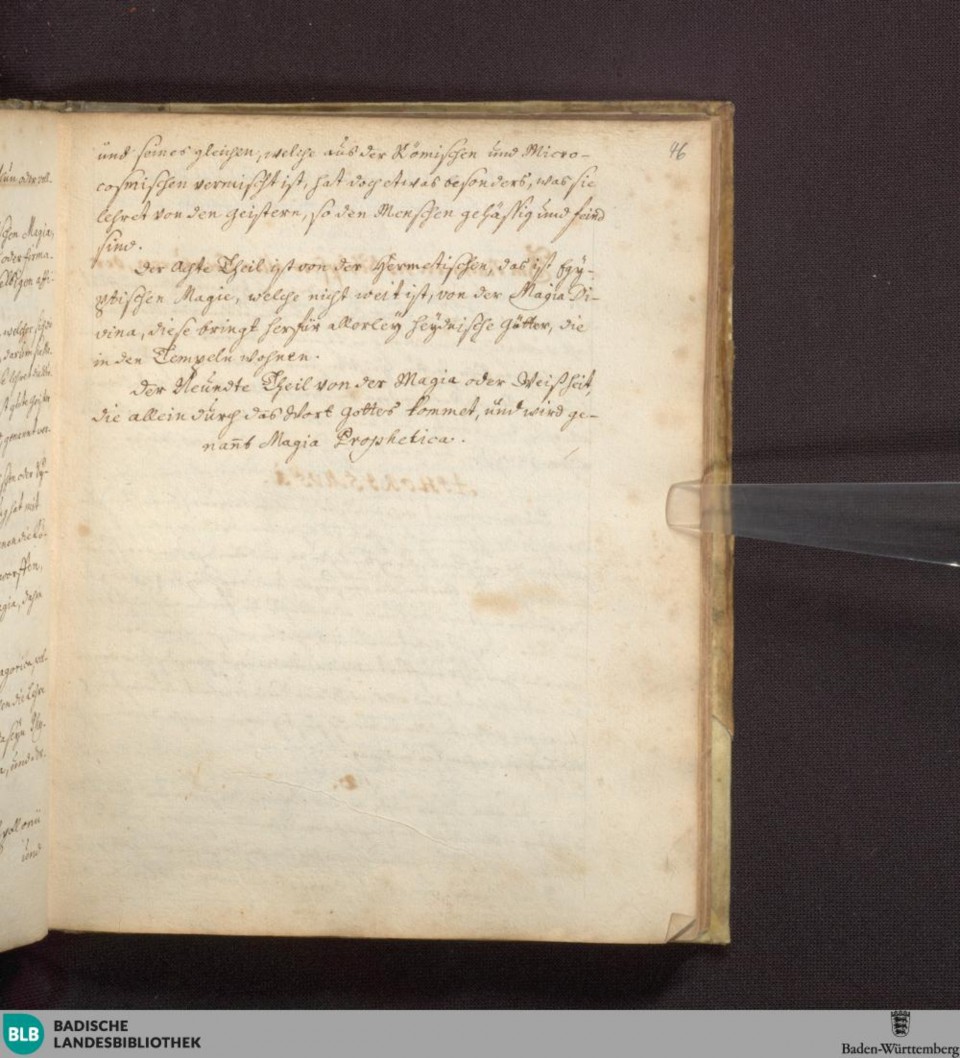 46
und seines gleichen, welche aus der Römischen und Micro-
cosmischen vermischt ist, hat doch etwas besonders, was sie
lehret von den geistern, so den Menschen gehässig und feind
sind.
Der Achte Theil ist von der Hermetischen, das ist Egÿ-
ptischen Magie, welche nicht weit ist, von der Magia Di-
vina, diese bringt herfür allerley heydnische Götter, die
in den Tempeln wohnen.
Der Neundte Theil von der Magia oder Weißheit,
die allein durch das Wort Gottes kommet, und wird ge-
nañt Magia Prophetica.
BLB BADISCHE
LANDESBIBLIOTHEK
Baden-Württemberg